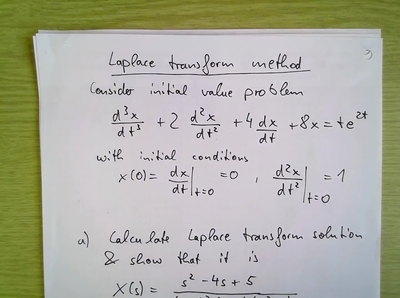 3)
Laplace transform method
Consider initial value problem
d³x/dt³ + 2 d²x/dt² + 4 dx/dt + 8x = te²ᵗ
with initial conditions
x(0) = dx/dt|t=0 = 0 , d²x/dt²|t=0 = 1
a) Calculate Laplace transform solution
& show that it is
X(s) = s² - 4s + 5